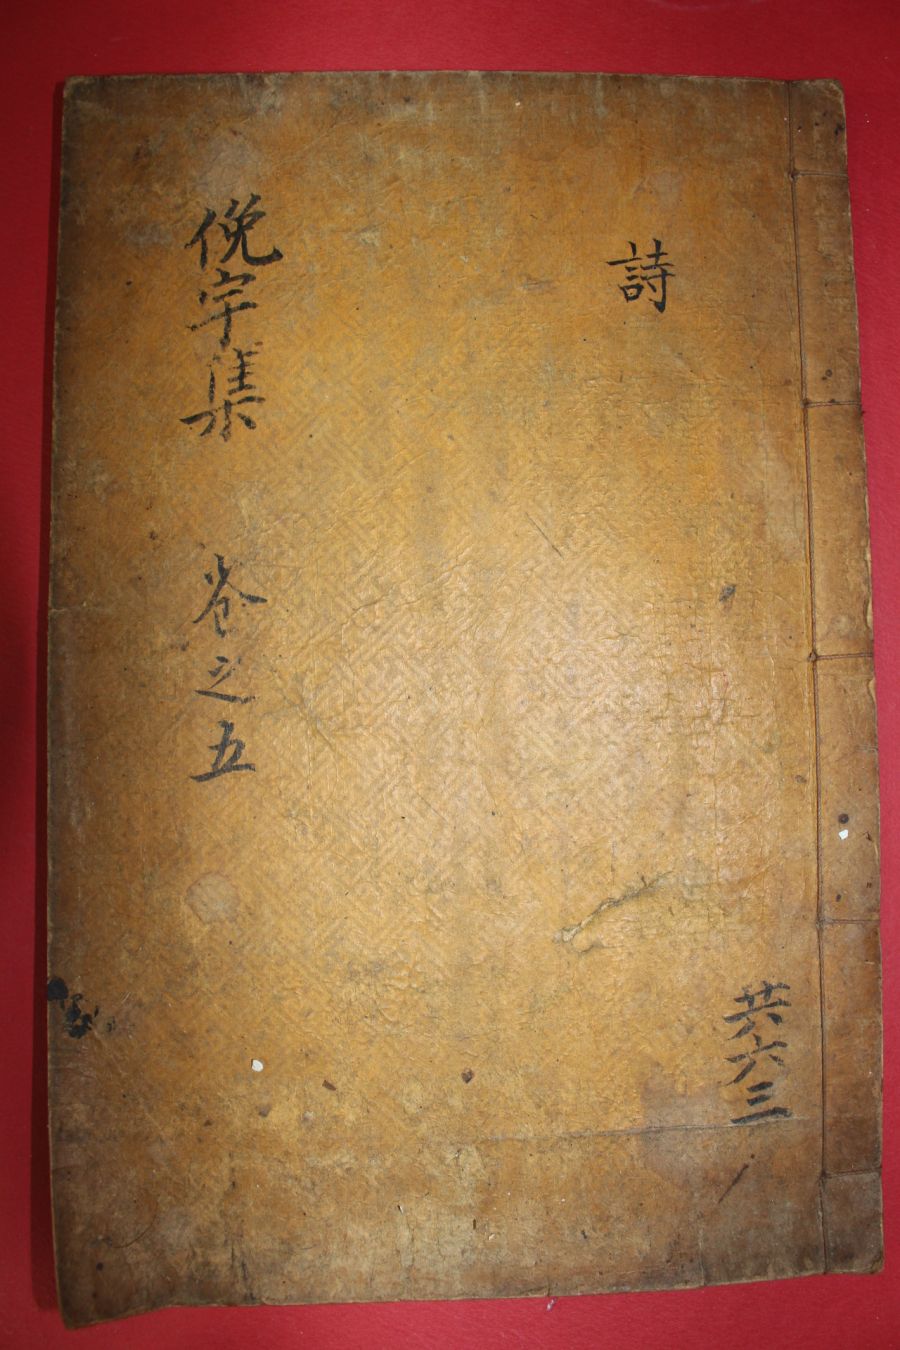 俛宇集 卷之五
詩
共六三